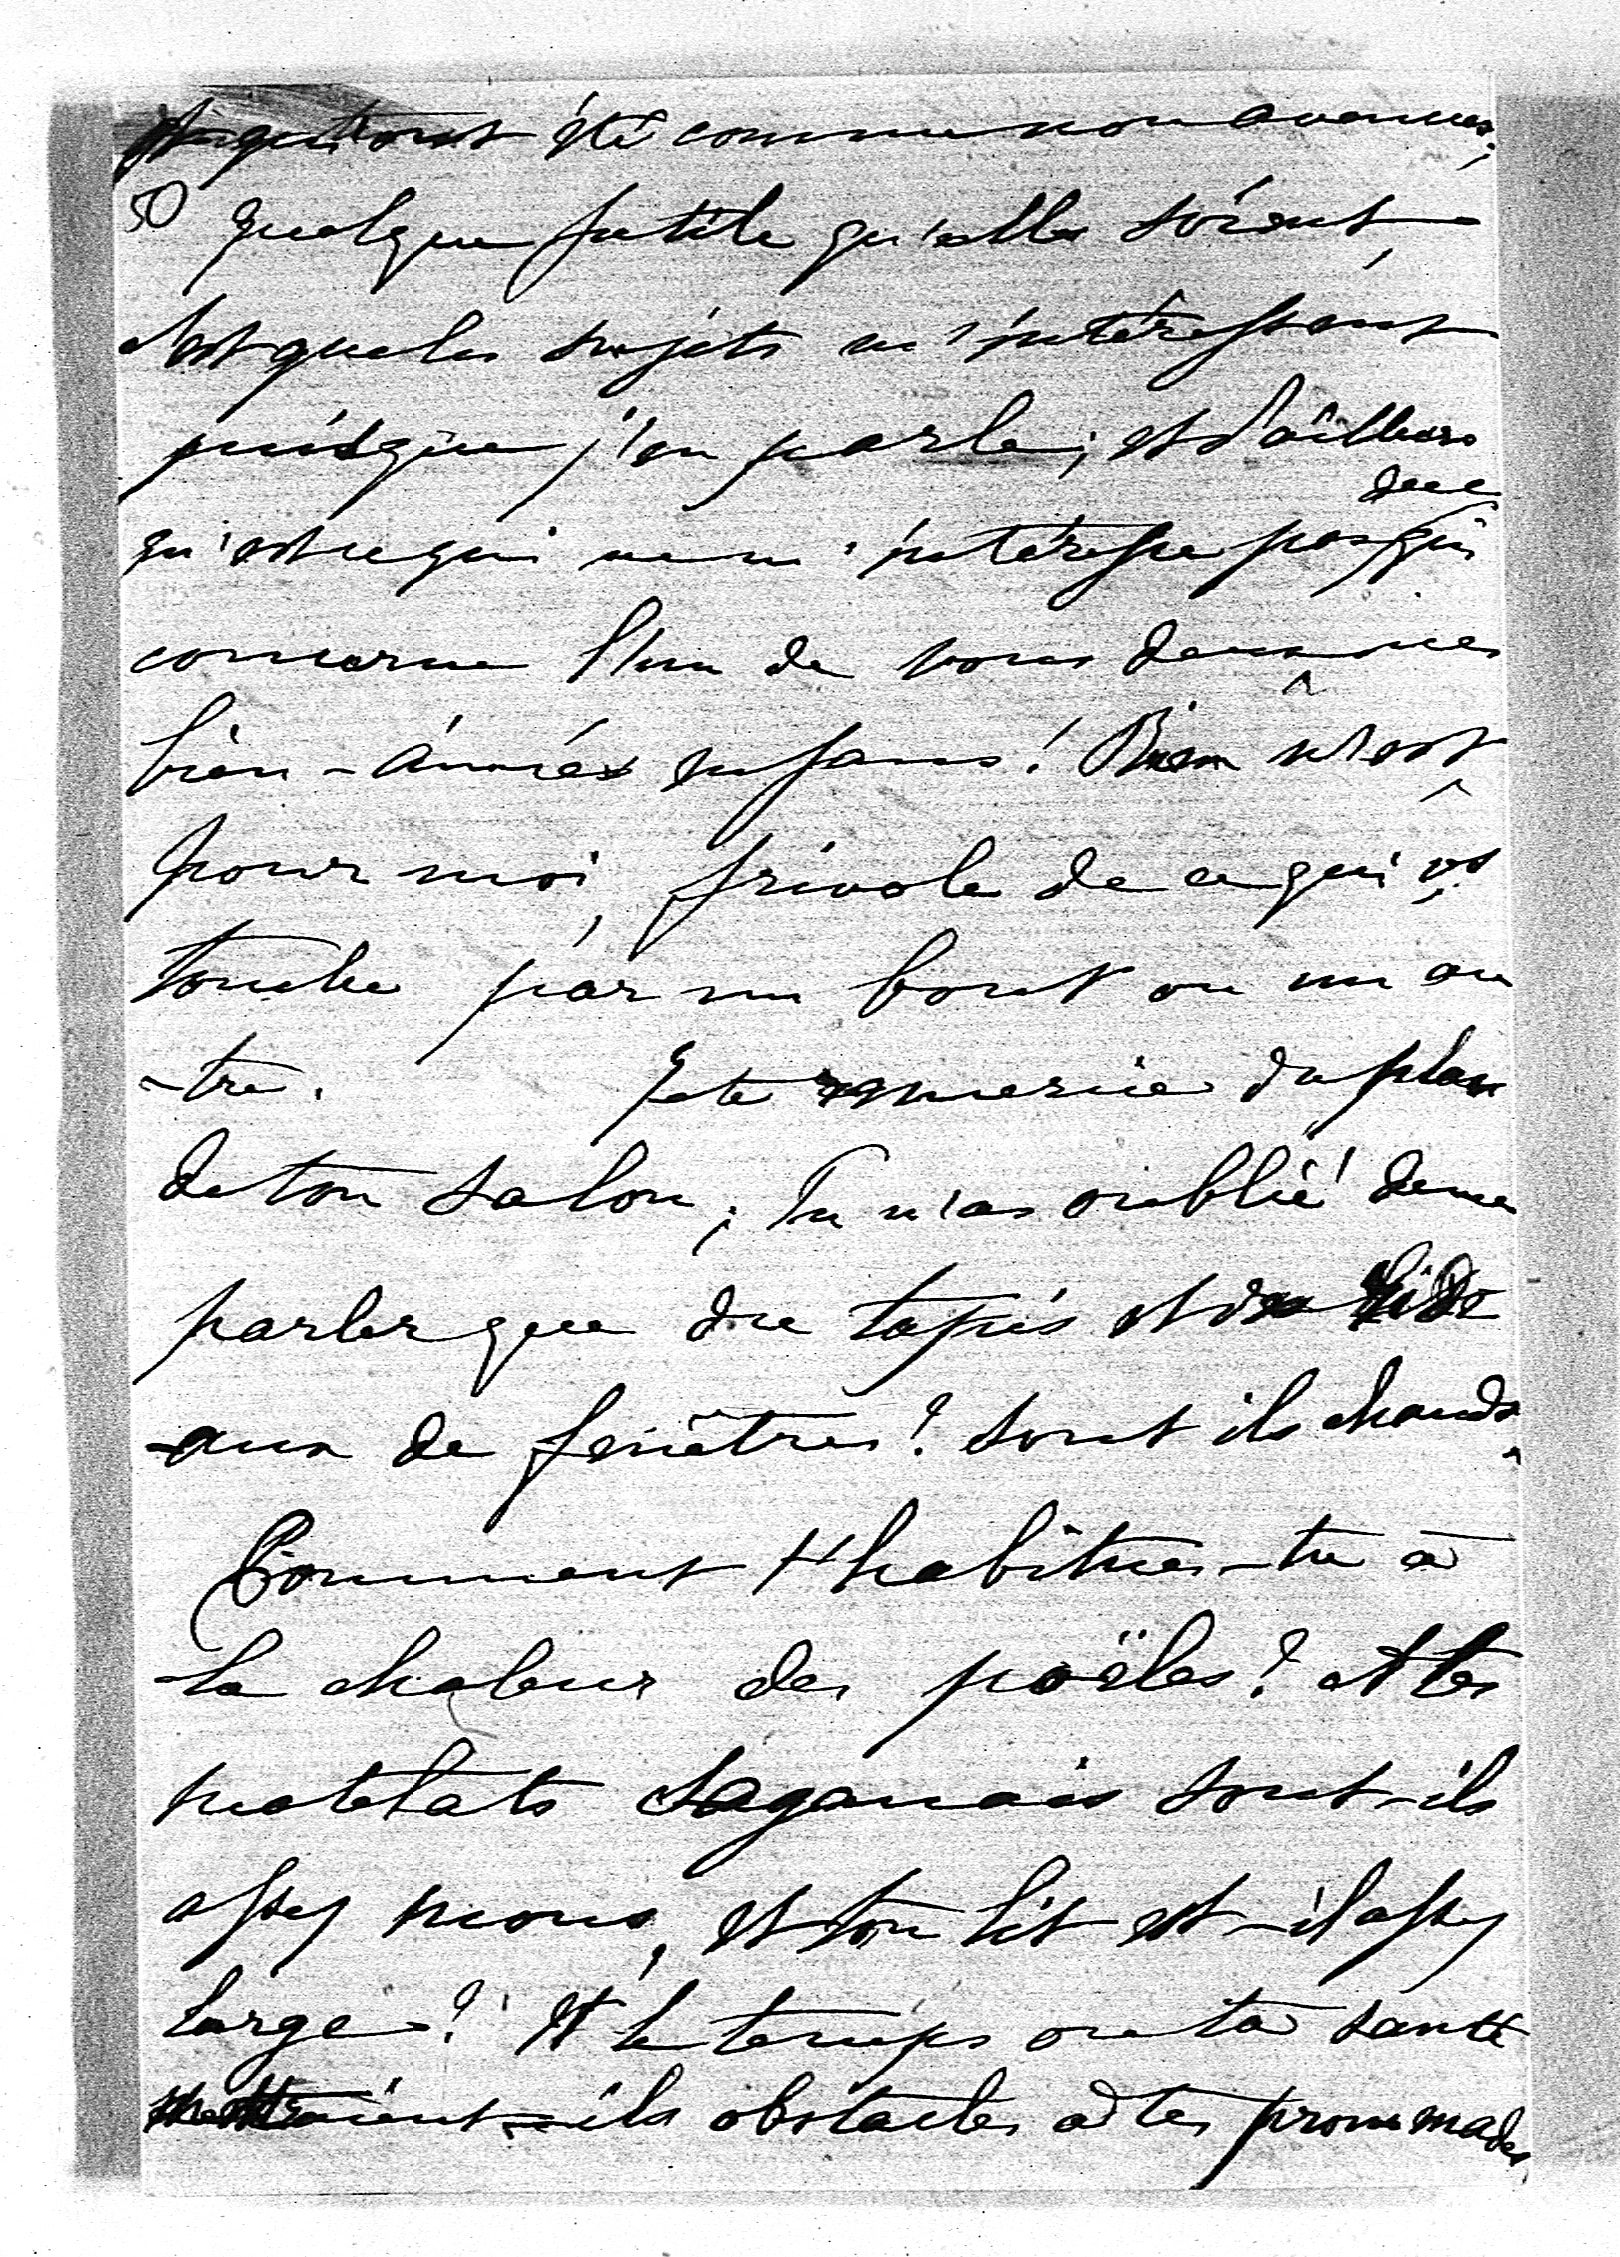 et qui ont été comme non avenues;
50 quelque futile qu'elles soient,
c'est que les sujets m'intéressent
puisque j'en parle; et d'ailleurs
qu'est ce qui ne m'intéresse pas de ce qui
concerne l'un de vous deux, mes
bien-aimés enfans! Rien n'est
pour moi, frivole de ce qui vs
touche par un bout ou un au
-tre. Je te remercie du plan
de ton salon; Tu n'as oublié de me
parler que du tapis et des ride
-aux de fenêtres? Sont ils chauds.
Comment t'habitues-tu à
la chaleur des poëles? et tes
matelats Saganais sont-ils
assez mous, et ton lit est-il assez
large? Et le temps ou ta santé
mettraient-ils obstacles à tes promenades,